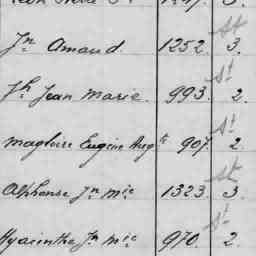 Jn Amand. 1252. St 3.
Jh Jean Marie. 993. St 2.
Magloire Eugène Augte 907. St 2.
Alphonse Jn Mie 1323. St 3.
Hyacinthe Jn Mie 970. St 2.